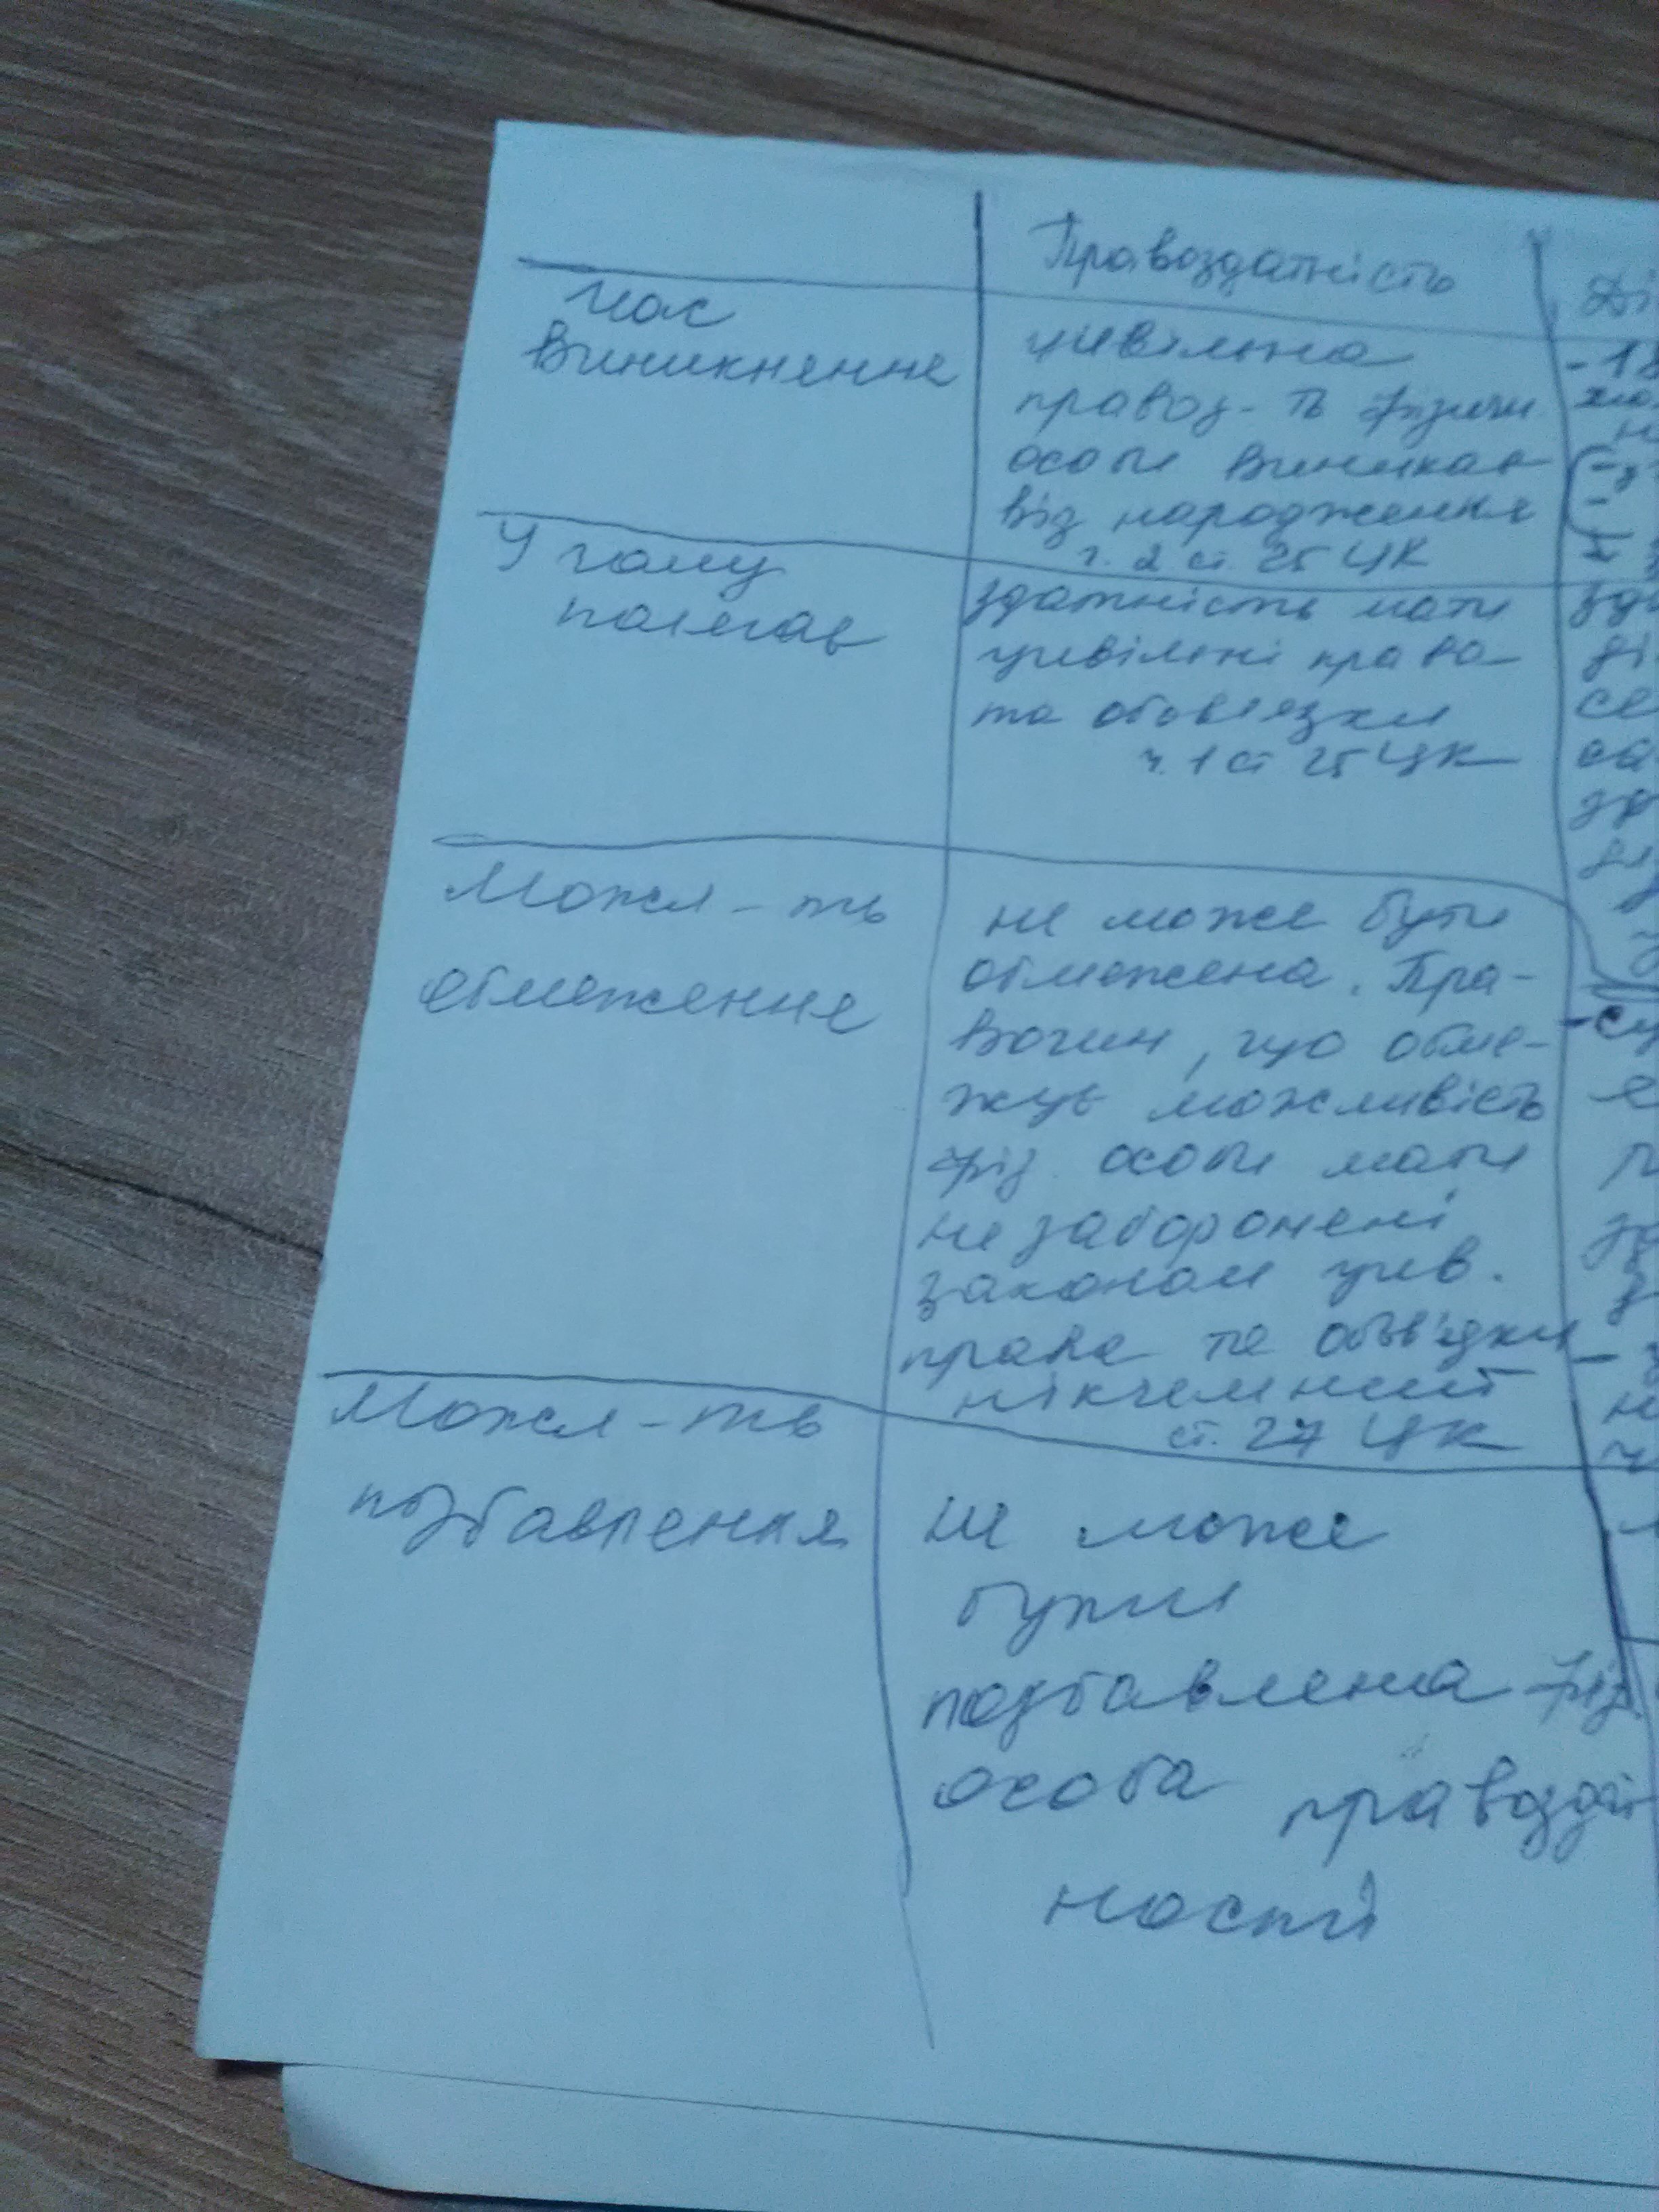 Правоздатність
Ді
час
виникнення
цивільна
правоз-ть фізичн
особи виникає
від народження
ч. 2 ст. 25 ЦК
- 18
У чому
полягає
здатність мати
цивільні права
та обов'язки
ч. 1 ст 25 ЦК
Можл-ть
обмеження
не може бути
обмежена. Пра-
вочин, що обме-
жує можливість
фіз. особи мати
не заборонені
законом цив.
права та обов'язки
нікчемний
ст. 27 ЦК
Можл-ть
позбавлення
не може
бути
позбавлена фіз.
особа правоздат
ності